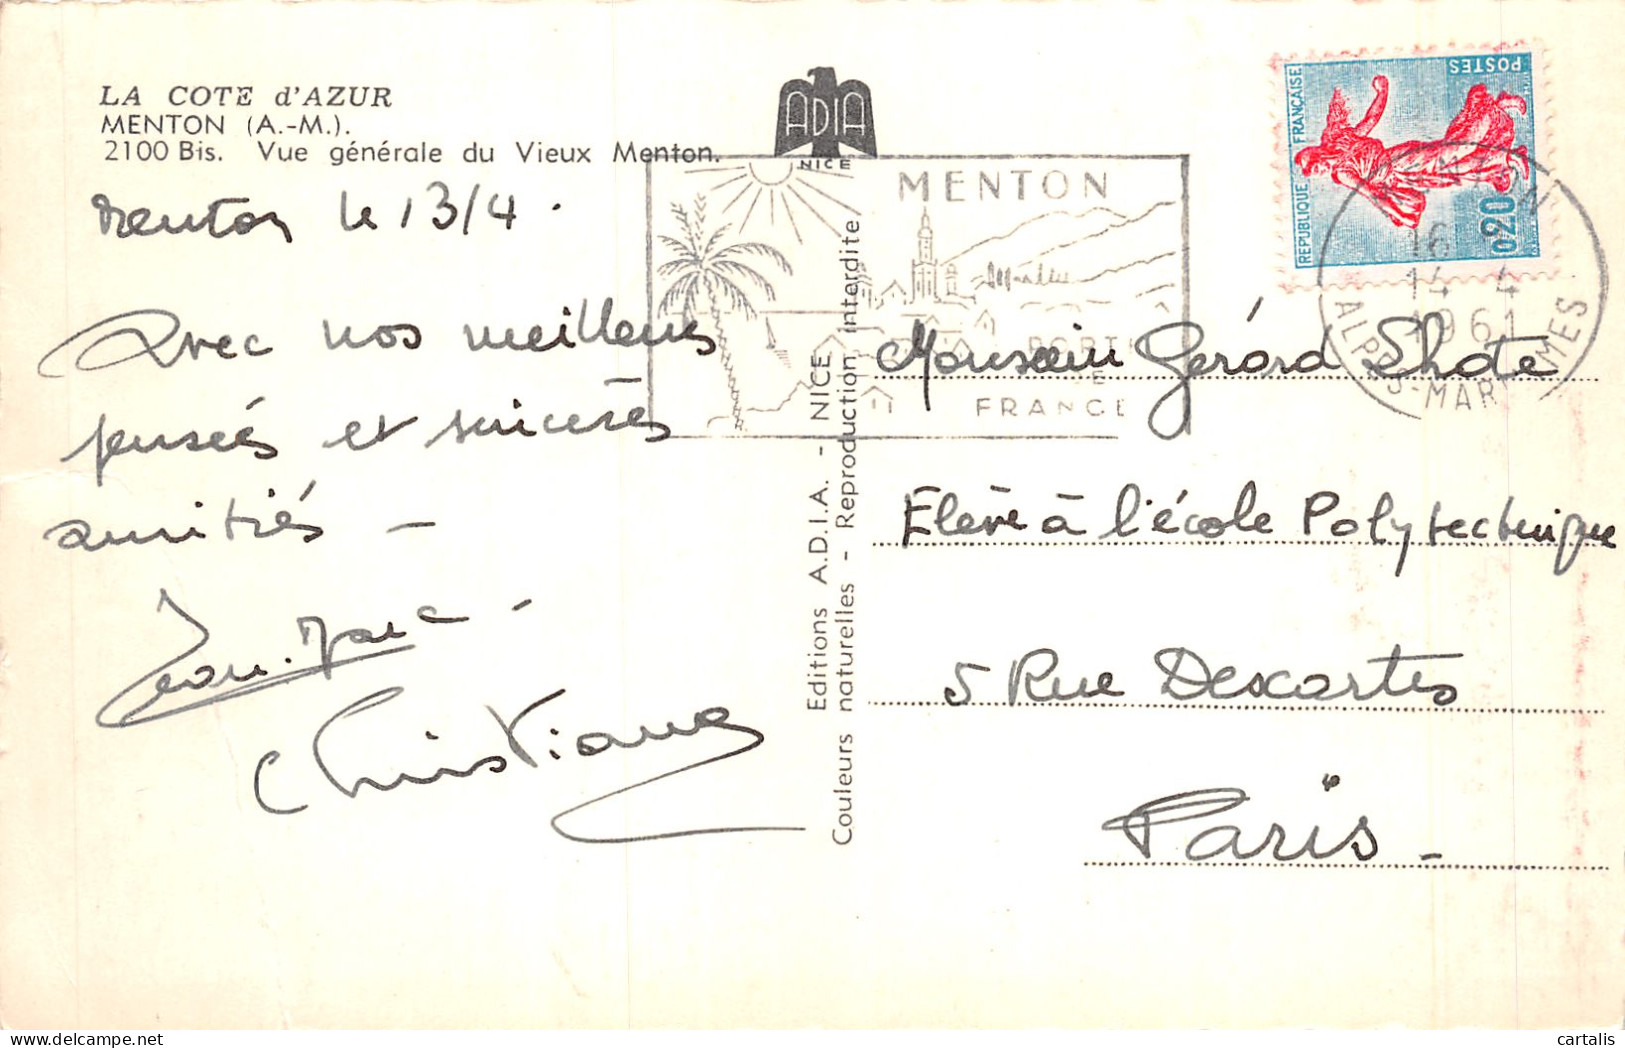 LA COTE d'AZUR
MENTON (A.-M.).
2100 Bis. Vue générale du Vieux Menton.
ADIA
NICE
Menton le 13/4.
Avec nos meilleurs
pensées et sincères
amitiés -
Jean-Marc -
Christiane
Editions A.D.I.A. - NICE
Couleurs naturelles - Reproduction interdite
MENTON
DE
FRANCE
POSTES
REPUBLIQUE FRANÇAISE
0,20
MENTON
16 H
14 - 4
1961
ALPES-MARITIMES
Monsieur Gérard Lhote
Elève à l'école Polytechnique
5 Rue Descartes
Paris -
cartalis